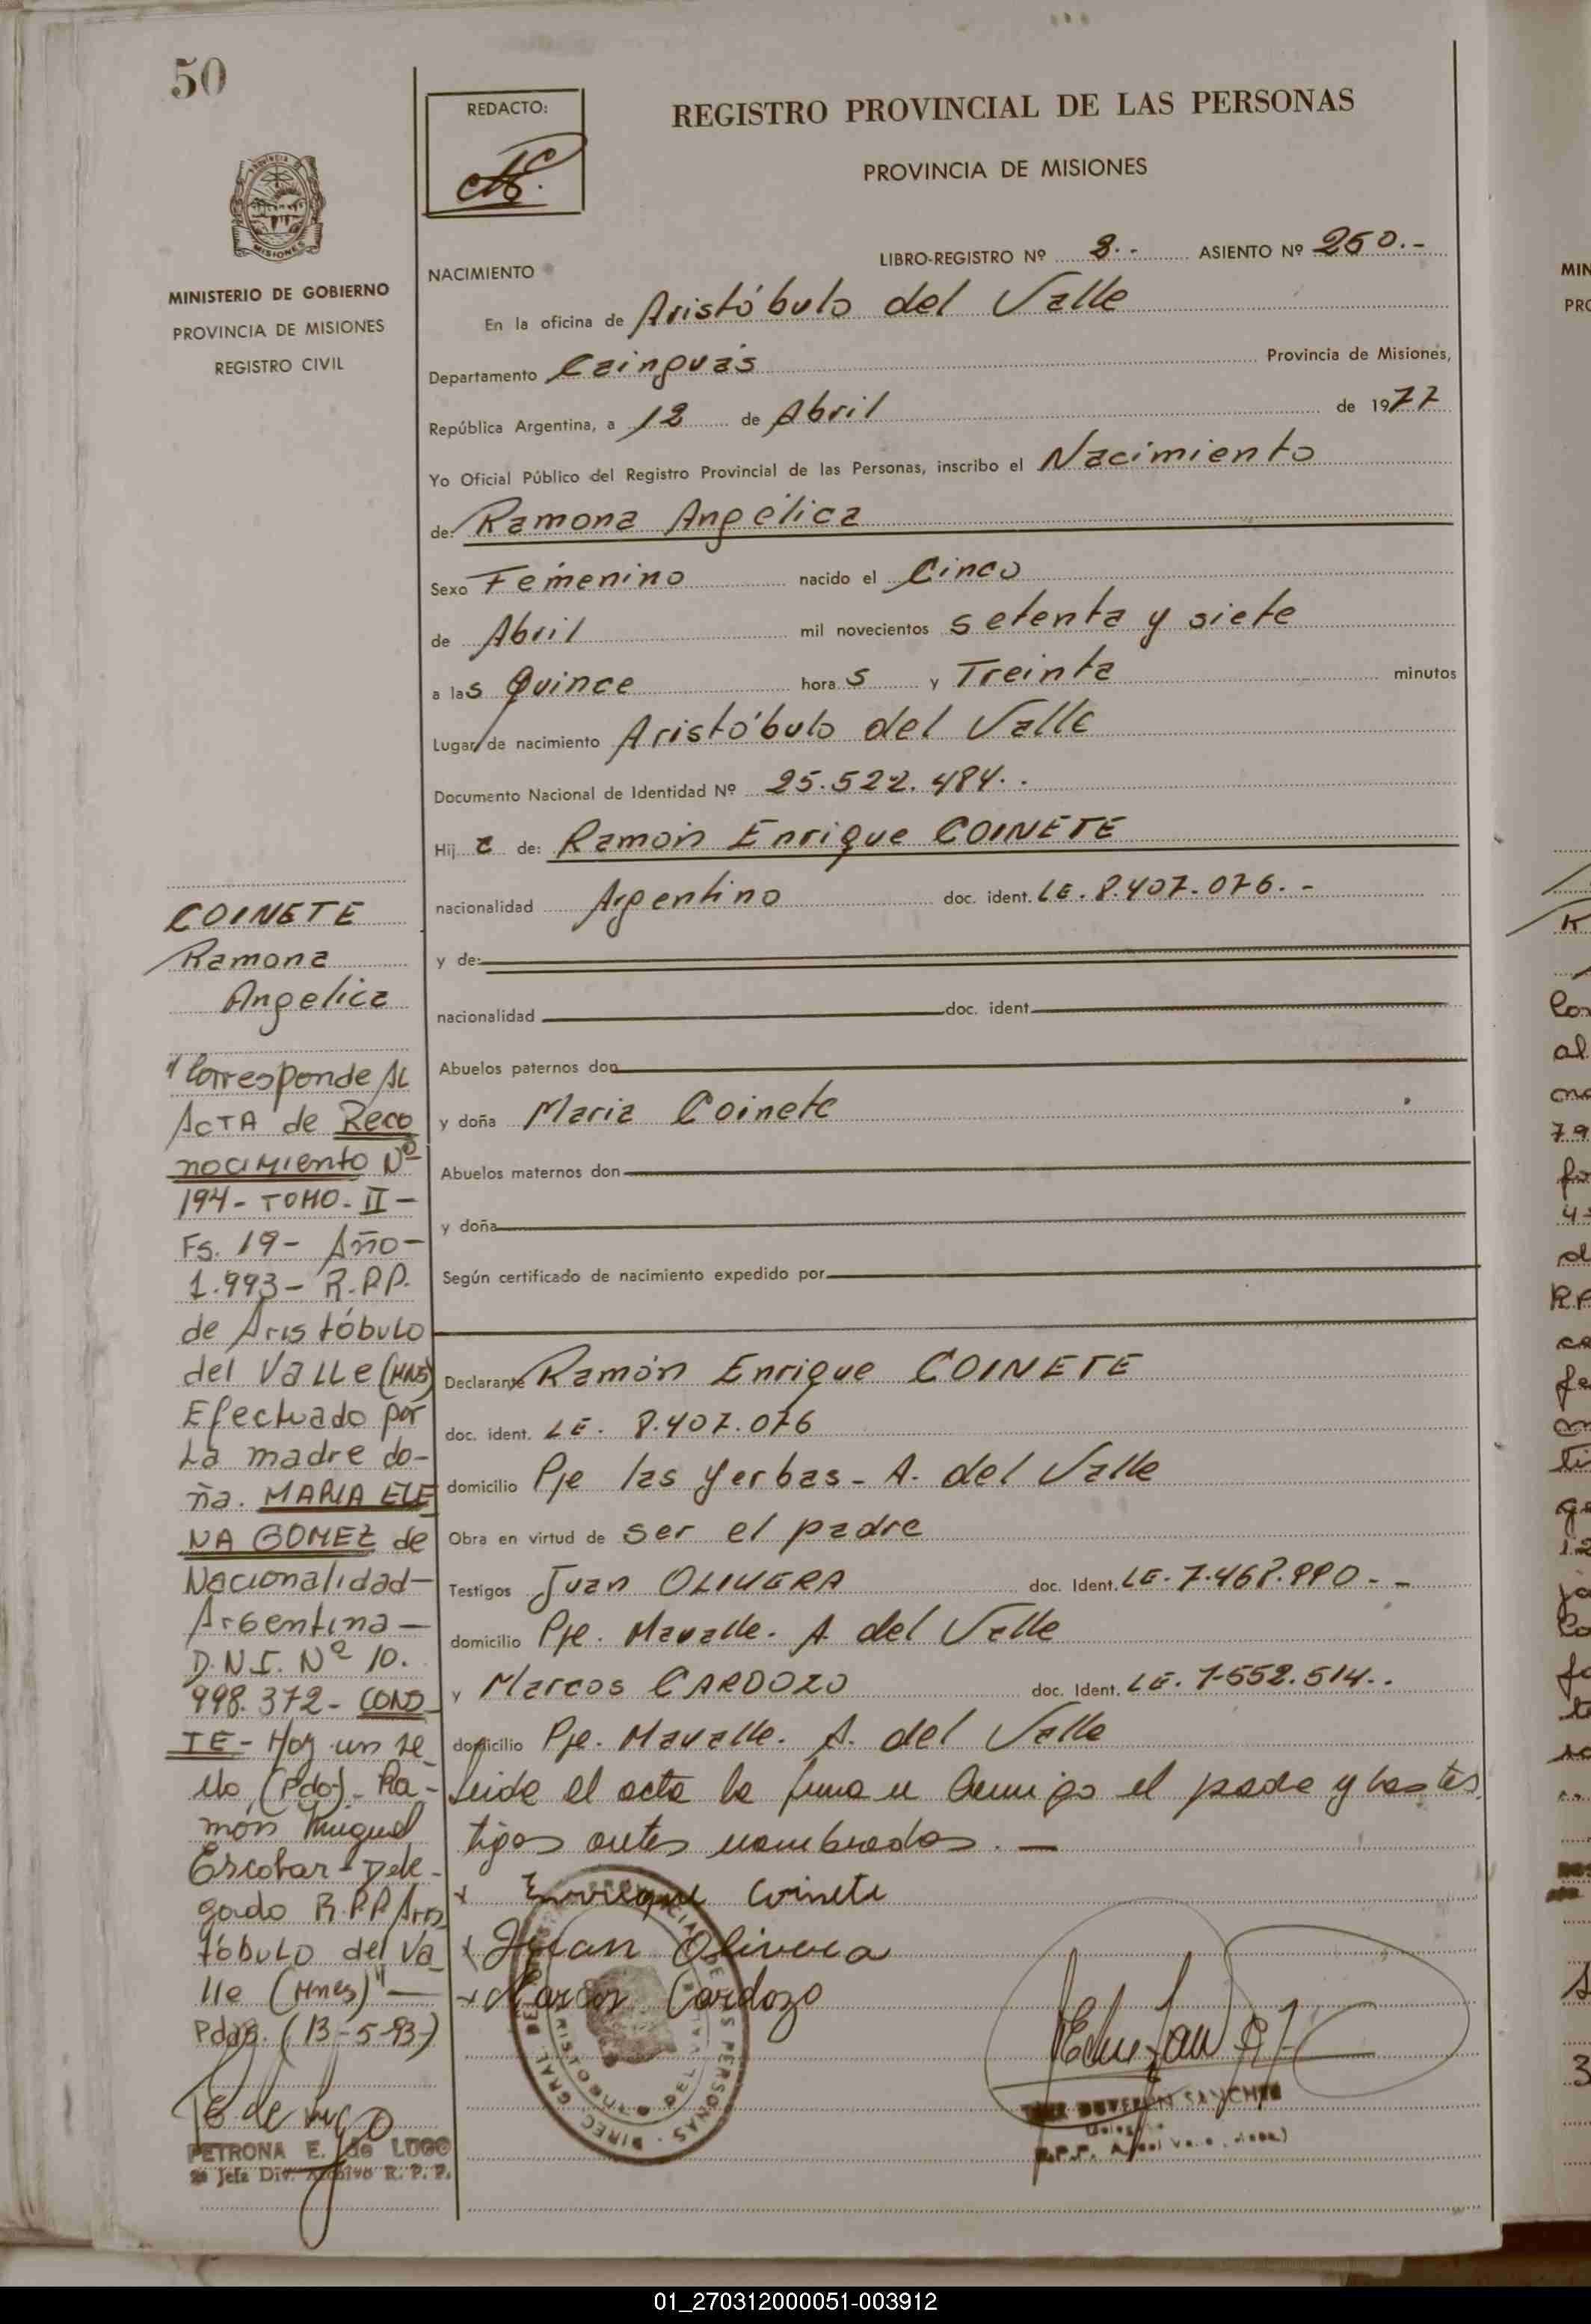 50
REDACTO:
REGISTRO PROVINCIAL DE LAS PERSONAS
PROVINCIA DE MISIONES
MISIONES
MINISTERIO DE GOBIERNO
PROVINCIA DE MISIONES
REGISTRO CIVIL
LIBRO-REGISTRO Nº 3.- ASIENTO Nº 250.-
NACIMIENTO
En la oficina de Aristóbulo del Valle
Departamento Cainguás Provincia de Misiones,
República Argentina, a 12 de Abril de 1977
Yo Oficial Público del Registro Provincial de las Personas, inscribo el Nacimiento
de: Ramona Angélica
Sexo Femenino nacido el Cinco
de Abril mil novecientos setenta y siete
a las Quince hora s y Treinta minutos
Lugar de nacimiento Aristóbulo del Valle
Documento Nacional de Identidad Nº 25.522.484.
Hij a de: Ramón Enrique COINETE
nacionalidad Argentino doc. ident. LE. 8.407.076.-
y de:
nacionalidad doc. ident.
Abuelos paternos don
y doña Maria Coinete
Abuelos maternos don
y doña
Según certificado de nacimiento expedido por
Declarante Ramón Enrique COINETE
doc. ident. LE. 8.407.076
domicilio Pje las Yerbas - A. del Valle
Obra en virtud de ser el padre
Testigos Juan OLIVERA doc. Ident. LE. 7.468.990.--
domicilio Pje. Mavalle. A del Valle
y Marcos CARDOZO doc. Ident. LE. 7.552.514..
domicilio Pje. Mavalle. A. del Valle
Leida el acta la firma n conmigo el padre y los tes
tigos antes nombrados. —
x Enrrique Coinete
x Juan Olivera
x Marcos Cardozo
COINETE
Ramona
Angelica
"Corresponde AL
ACTA de Reco
nocimiento Nº
194- TOMO- II-
Fs. 19- Año-
1.993- R.P.P.
de Aristóbulo
del Valle (MNES)
Efectuado por
La madre do-
ña. MARIA ELE
NA GOMEZ de
Nacionalidad-
Argentina-
D.N.I. Nº 10.
998.372- CONS
TE- Hay un se
llo (Fdo)- Ra-
món Miguel
Escobar- Dele-
gado R.P.P Aris
tóbulo del Va
lle (Mnes)"-
Pdas. (13-5-93-)
PETRONA E. de LUGO
2a Jefa Div. Archivo R. P. P.
01_270312000051-003912